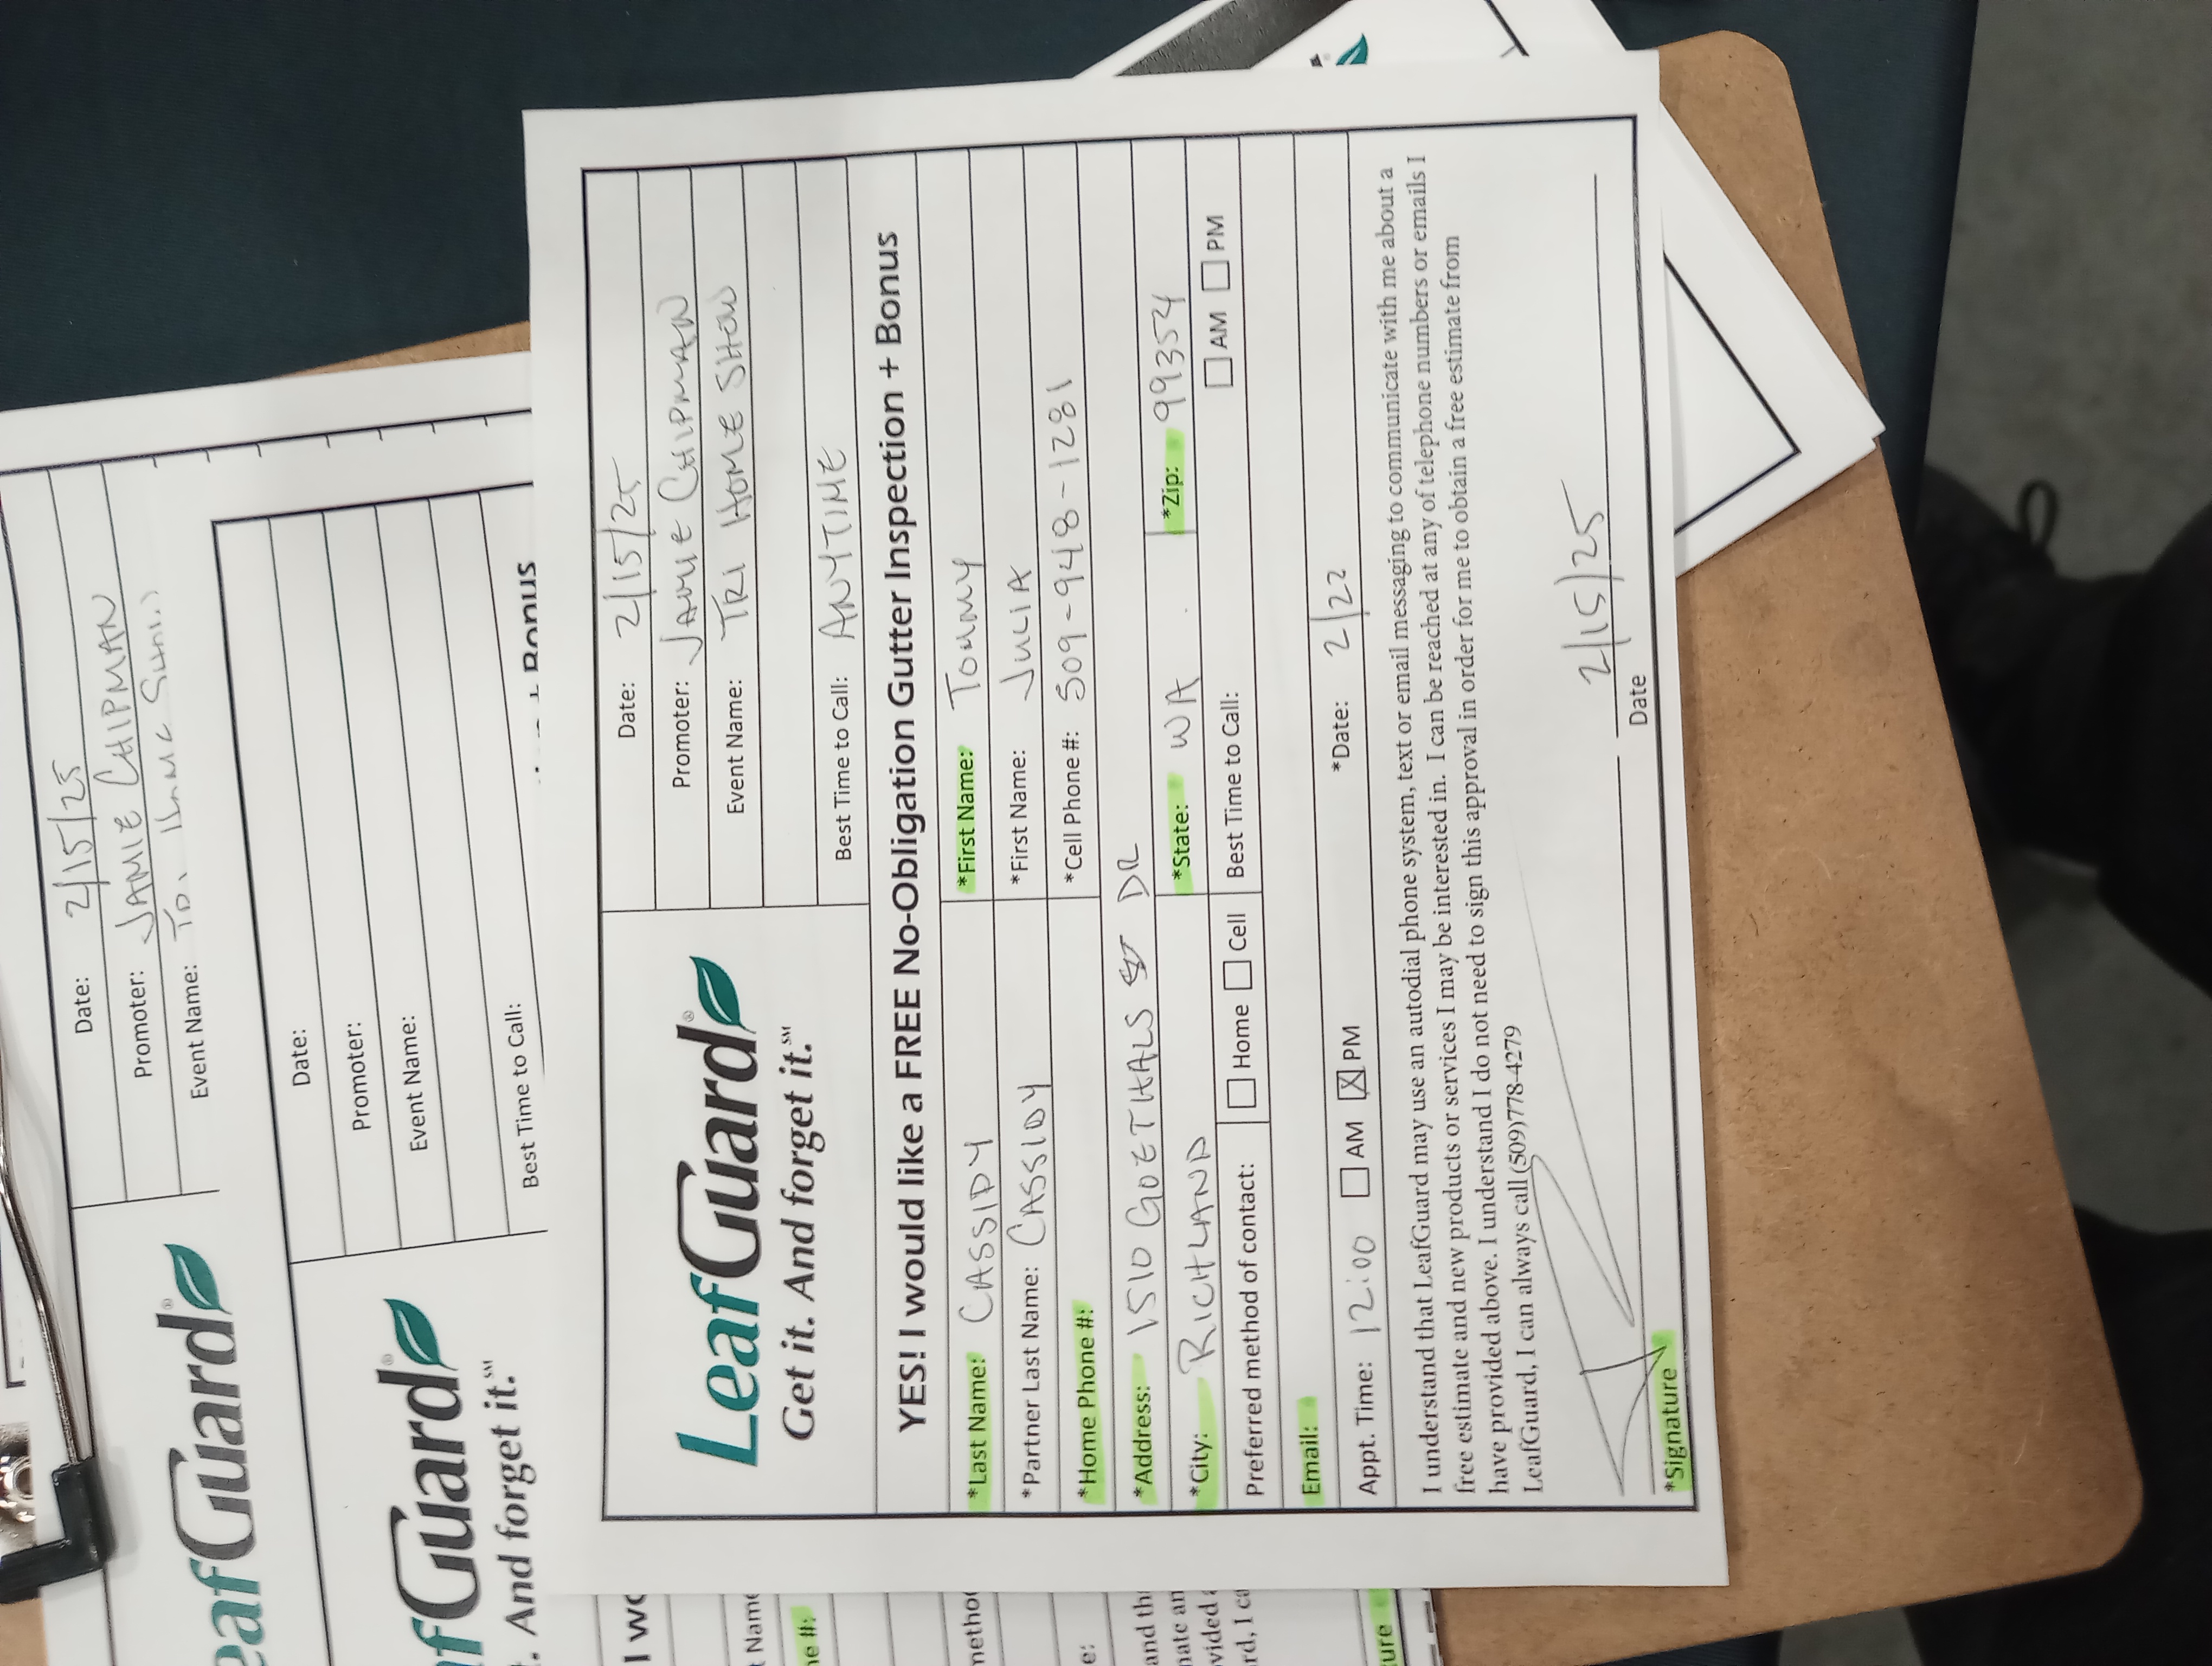 Date: 2/15/25
Promoter: JAMIE CHIPMAN
eafGuard®
Event Name:
Date:
Promoter:
fGuard®
Event Name:
. And forget it.℠
Best Time to Call:
+ Bonus
Date: 2/15/25
LeafGuard®
Promoter: JAMIE CHIPMAN
Event Name: TRI HOME SHOW
Get it. And forget it.℠
Best Time to Call: ANYTIME
YES! I would like a FREE No-Obligation Gutter Inspection + Bonus
*Last Name: CASSIDY *First Name: TOMMY
*Partner Last Name: CASSIDY *First Name: JULIA
*Home Phone #: *Cell Phone #: 509-948-1281
*Address: 1510 GOETHALS DR
*City: RICHLAND *State: WA *Zip: 99354
Preferred method of contact: Home Cell Best Time to Call: AM PM
Email:
Appt. Time: 12:00 AM X PM *Date: 2/22
I understand that LeafGuard may use an autodial phone system, text or email messaging to communicate with me about a
free estimate and new products or services I may be interested in. I can be reached at any of telephone numbers or emails I
have provided above. I understand I do not need to sign this approval in order for me to obtain a free estimate from
LeafGuard, I can always call (509)778-4279
2/15/25
*Signature Date